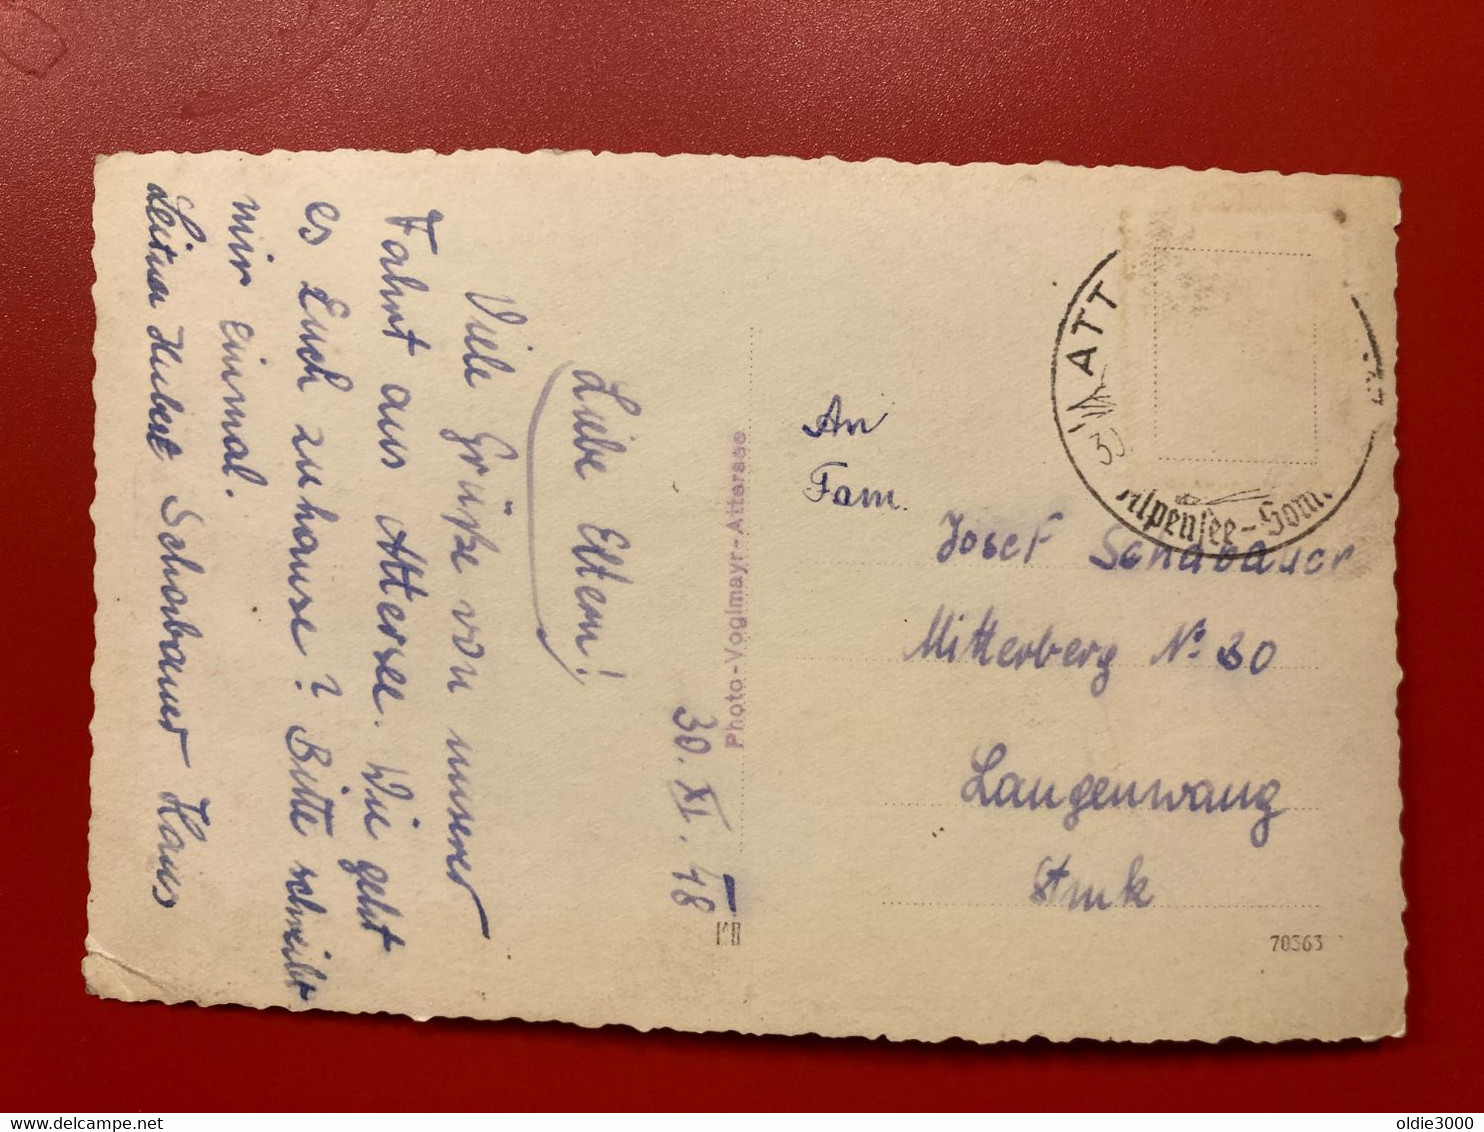 30. XI. 48
Liebe Eltern!
Viele Grüße von unserer
Fahrt aus Attersee. Wie geht
es Euch zuhause? Bitte schreibt
mir einmal.
Leitner Hubert Schabauer Hans
Photo-Voglmayr-Attersee
ATT
Alpensee-Som.
An
Fam.
Josef Schabauer
Mitterberg No 30
Langenwang
Stmk
70363
delcampe.net
oldie3000